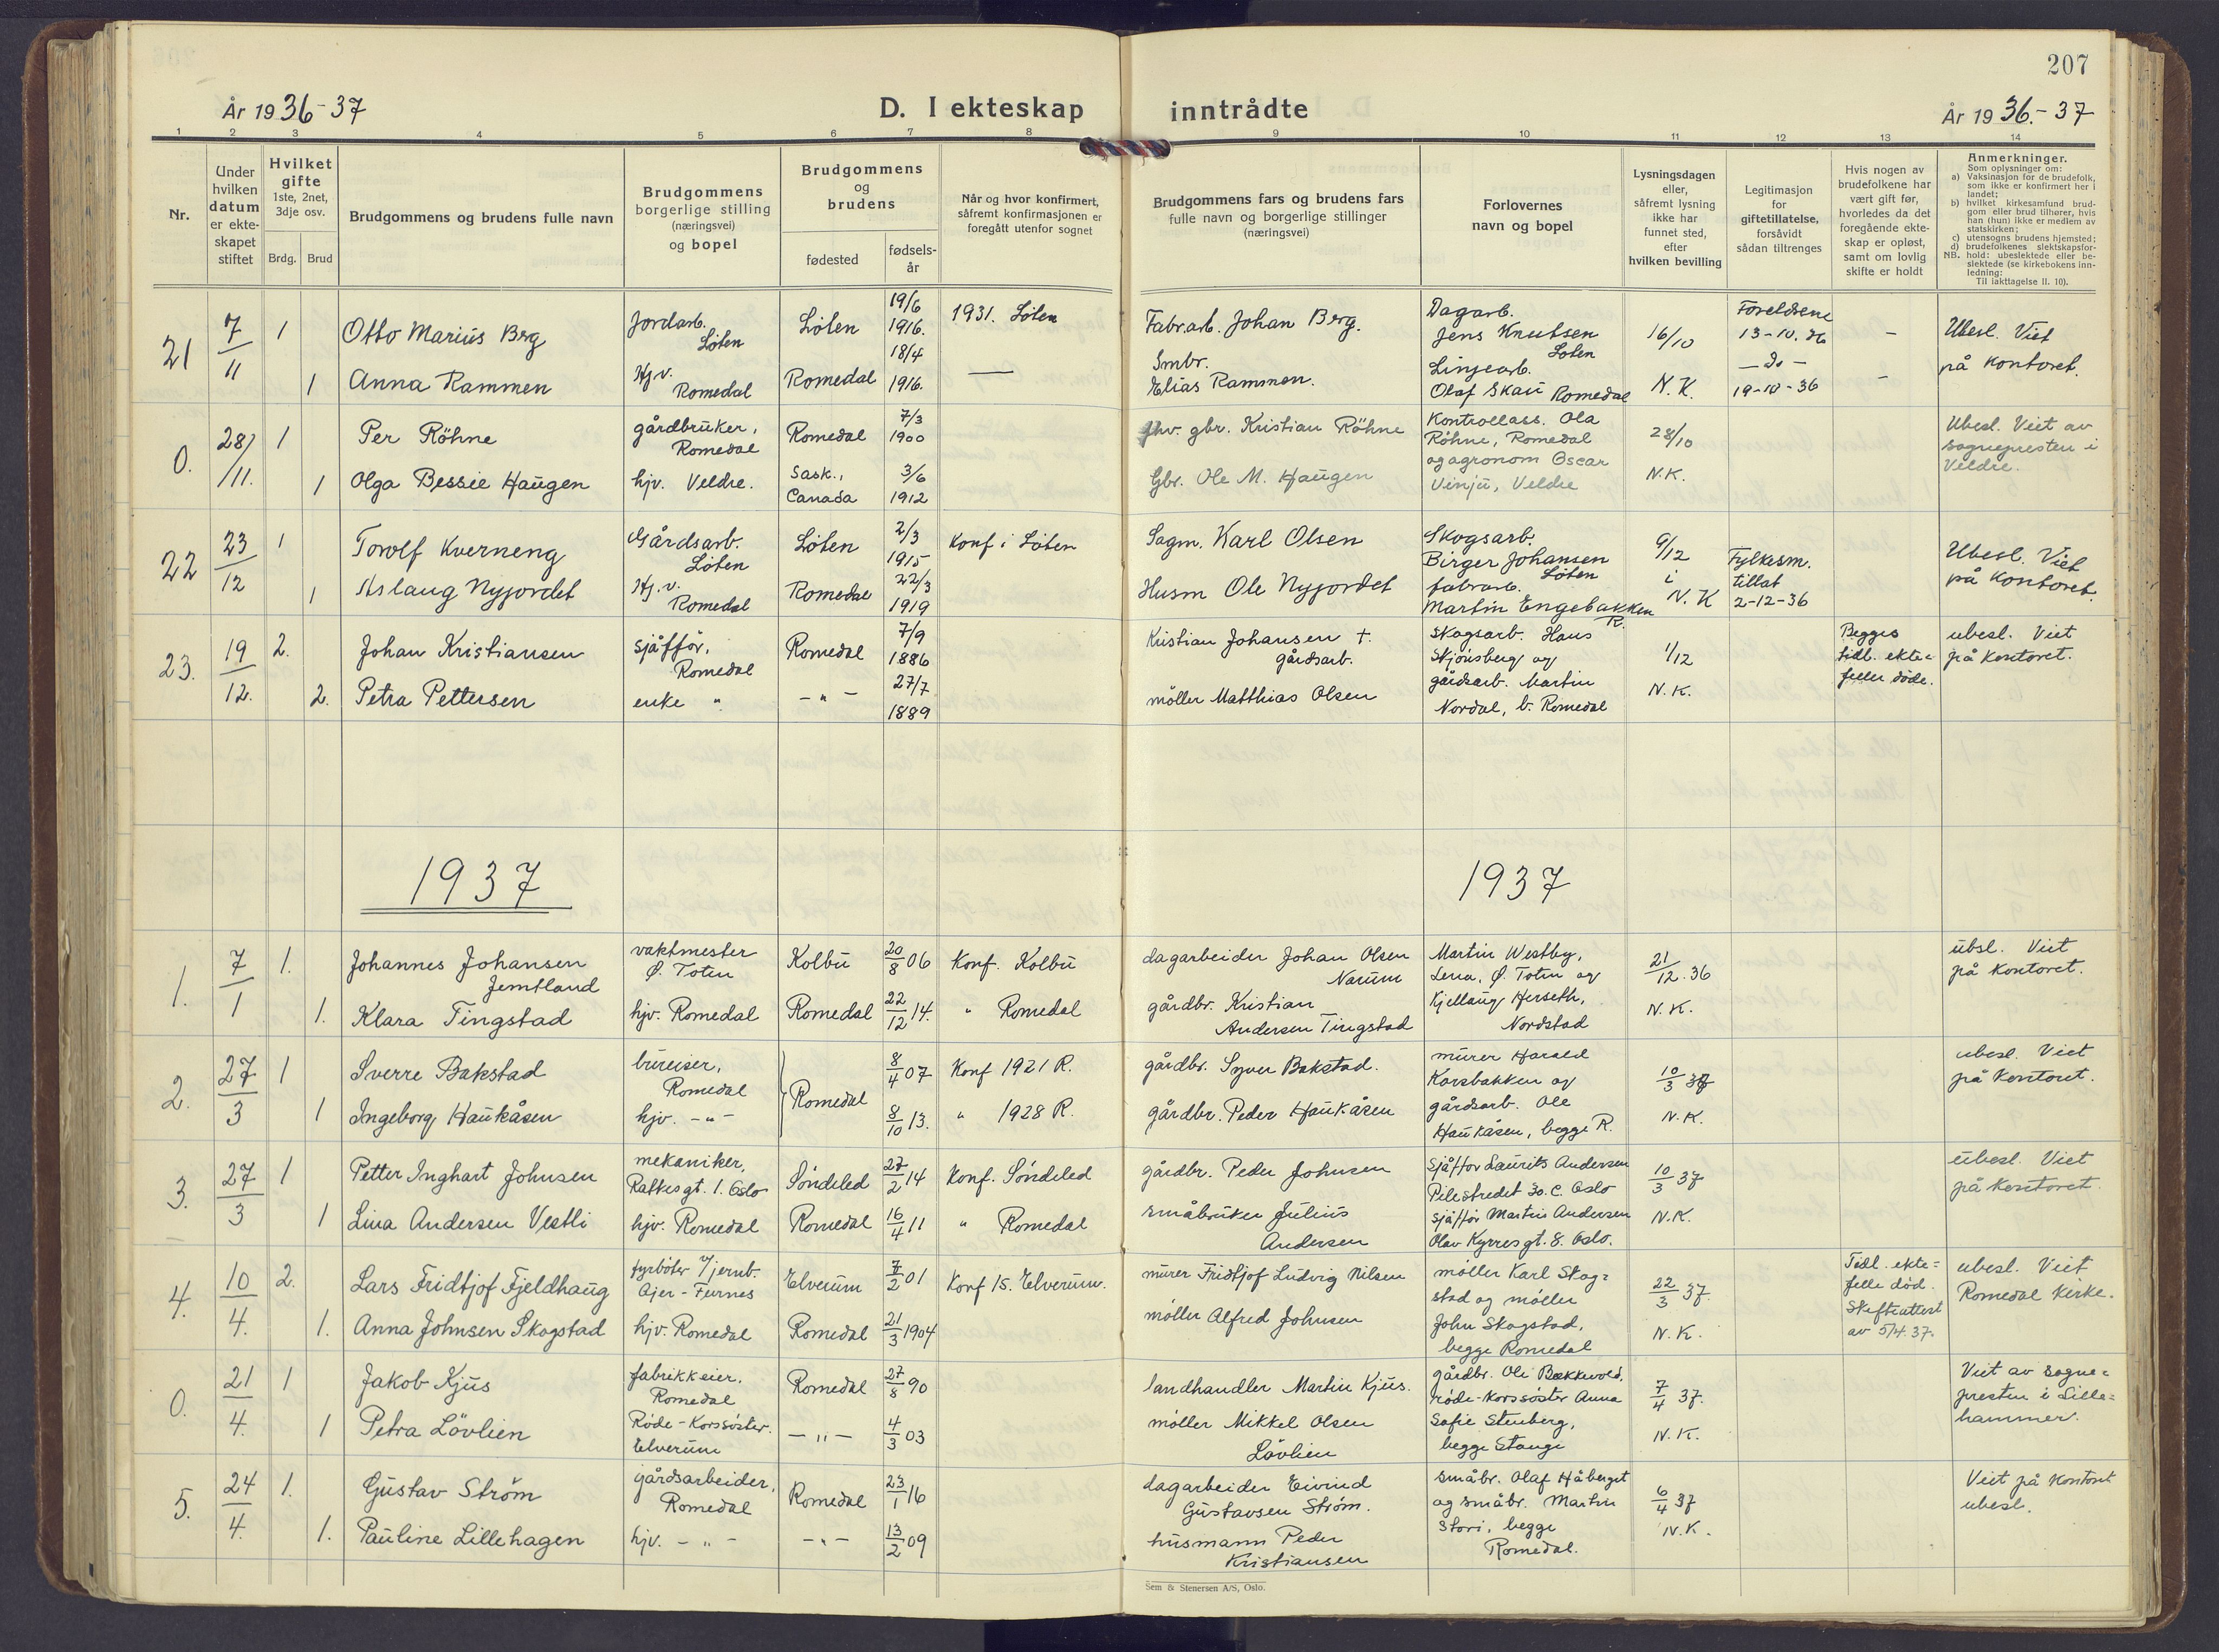 207
År 1936-37
D. I ekteskap
inntrådte
År 1936.-37
1 2 3 4 5 6 7 8 9 10 11 12 13 14
Nr.
Under
hvilken
datum
er ekte-
skapet
stiftet
Hvilket
gifte
1ste, 2net,
3dje osv.
Brdg. Brud
Brudgommens og brudens fulle navn
Brudgommens
borgerlige stilling
(næringsvei)
og bopel
Brudgommens
og
brudens
fødested
fødsels-
år
Når og hvor konfirmert,
såfremt konfirmasjonen er
foregått utenfor sognet
Brudgommens fars og brudens fars
fulle navn og borgerlige stillinger
(næringsvei)
Forlovernes
navn og bopel
Lysningsdagen
eller,
såfremt lysning
ikke har
funnet sted,
efter
hvilken bevilling
Legitimasjon
for
giftetillatelse,
forsåvidt
sådan tiltrenges
Hvis nogen av
brudefolkene har
vært gift før,
hvorledes da det
foregående ekte-
skap er opløst,
samt om lovlig
skifte er holdt
Anmerkninger.
Som oplysning om:
a) Vaksinasjon for de brudefolk,
som ikke er konfirmert her i
landet;
b) hvilket kirkesamfund brud-
gom eller brud tilhører, hvis
han (hun) ikke er medlem av
statskirken;
c) utensogns brudens hjemsted;
d) brudefolkenes slektskapsfor-
NB. hold: ubeslektede eller be-
slektede (se kirkebokens inn-
ledning:
Til iakttagelse II. 10).
21
7/11
1
Otto Marius Berg
Jordarb.
Löten
Löten
19/6
1916.
1931. Löten
Fabr.arb. Johan Berg.
Dagarb.
Jens Knutsen
Löten
16/10
Foreldrene
13-10.36
-
Ubesl. Viet
på kontoret.
1
Anna Rammen
Hj.v.
Romedal
Romedal
18/4
1916.
—
Smbr.
Elias Rammen.
Linjearb.
Olaf Skau Romedal
N.K.
- do -
19-10-36
-
0.
28/11.
1
Per Röhne
gårdbruker,
Romedal
Romedal
7/3
1900
fhv. gbr. Kristian Röhne
Kontrollass. Ola
Röhne, Romedal
28/10
Ubesl. Viet av
sognepresten i
Veldre.
1
Olga Bessie Haugen
hjv. Veldre.
Sask.,
Canada
3/6
1912
Gbr. Ole M. Haugen
og agronom Oscar
Vinju, Veldre
N.K.
22
23/12
1
Torolf Kverneng
Gårdsarb.
Löten
Löten
2/3
1915
Konf i Löten
Sagm. Karl Olsen
Skogsarb.
Birger Johansen
Löten
9/12
i
Fylkesm.
tillat
2-12-36
Ubesl. Viet
på kontoret.
1
Aslaug Nyjordet
Hj.v.
Romedal
Romedal
22/3
1919
Husm Ole Nyjordet
fabrarb.
Martin Engebakken
R.
N.K
23.
19/12.
2.
Johan Kristiansen
sjåfför,
Romedal
Romedal
7/9
1886
Kristian Johansen †.
gårdsarb.
Skogsarb. Hans
Skjönsberg og
1/12
Begges
tidl. ekte=
feller döde.
ubesl. Viet
på kontoret.
2.
Petra Pettersen
enke "
- " -
27/7
1889
möller Matthias Olsen
gårdsarb. Martin
Nordal, b. Romedal
N.K.
1937
1937
1.
7/1
1.
Johannes Johansen
Jemtland
vaktmester
Ö. Toten
Kolbu
20/8 06
Konf. Kolbu
dagarbeider Johan Olsen
Narum
Martin Westby,
Lena, Ö. Toten og
21/12.36
übsl. Viet
på kontoret.
1.
Klara Tingstad
hjv. Romedal
Romedal
22/12 14.
" Romedal
gårdbr. Kristian
Andersen Tingstad
Kjellaug Herseth,
Nordstad
N.K.
2.
27/3
1
Sverre Bakstad
bureiser,
Romedal
Romedal
8/4 07
Konf 1921 R.
gårdbr. Syver Bakstad.
murer Harald
Korsbakken og
10/3 37
ubesl. Viet
på kontoret.
1
Ingeborg Haukåsen
hjv. - " -
8/10 13.
" 1928 R.
gårdbr. Peder Haukåsen
gårdsarb. Ole
Haukåsen, begge R.
N.K.
3.
27/3
1
Petter Inghart Johnsen
mekaniker,
Ratkesgt. 1. Oslo
Söndeled
27/2 14
Konf. Söndeled
gårdbr. Peder Johnsen
sjåffor Laurits Andersen
Pilestredet 30.c. Oslo
10/3 37
ubesl. Viet
på kontoret.
1
Lina Andersen Vestli
hjv. Romedal
Romedal
16/4 11
" Romedal
småbruker Julius
Andersen
sjåfför Martin Andersen
Olav Kyrresgt. 8. Oslo.
N.K.
4.
10/4.
2.
Lars Fridtjof Fjeldhaug
fyrböter v/jernb.
Ajer - Furnes
Elverum
7/2 01
Konf 15. Elverum.
murer Fridtjof Ludvig Nilsen
möller Karl Skog=
stad og möller
22/3 37.
Tidl. ekte=
felle död.
Skifteattest
av 5/4.37.
ubesl. Viet
Romedal kirke.
1.
Anna Johnsen Skogstad
hjv. Romedal
Romedal
21/3 1904
möller Alfred Johnsen
John Skogstad,
begge Romedal
N.K.
0.
21/4.
1
Jakob Kjus
fabrikkeier,
Romedal
Romedal
27/8 90
landhandler Martin Kjus.
gårdbr. Ole Bækkevold,
röde-korssöster Anna
7/4 37.
Viet av sogne=
presten i Lille=
hammer.
1
Petra Lövlien
Röde-Korssöster.
Elverum
- " -
4/3 03
möller Mikkel Olsen
Lövlien
Sofie Stenberg,
begge Stange
N.K.
5.
24/4.
1.
Gustav Ström
gårdsarbeider,
Romedal
Romedal
23/1 16
dagarbeider Eivind
Gustavsen Ström.
småbr. Olaf Håberget
og småbr. Martin
6/4 37
Viet på kontoret
ubesl.
1.
Pauline Lillehagen
hjv. - " -
- " -
13/2 09
husmann Peder
Kristiansen
Stori, begge
Romedal.
N.K.
Sem & Stenersen A/S, Oslo.